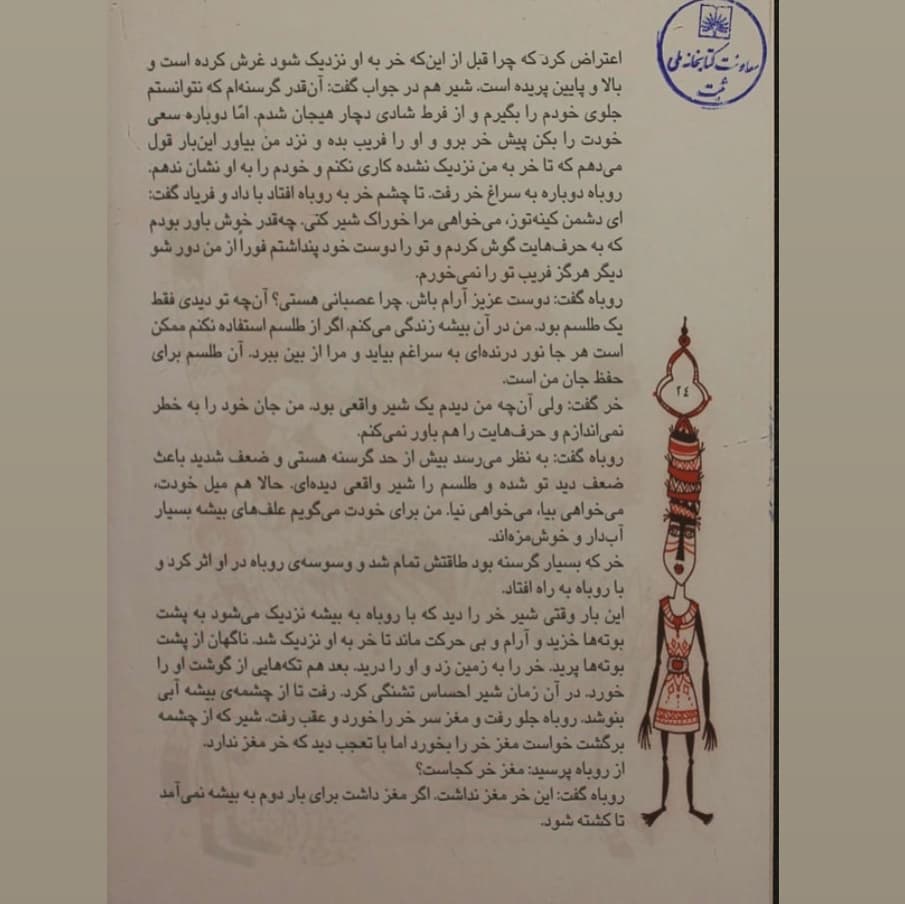 معاونت کتابخانه ملی
ثبت
اعتراض کرد که چرا قبل از این‌که خر به او نزدیک شود غرش کرده است و
بالا و پایین پریده است. شیر هم در جواب گفت: آن‌قدر گرسنه‌ام که نتوانستم
جلوی خودم را بگیرم و از فرط شادی دچار هیجان شدم. امّا دوباره سعی
خودت را بکن پیش خر برو و او را فریب بده و نزد من بیاور این‌بار قول
می‌دهم که تا خر به من نزدیک نشده کاری نکنم و خودم را به او نشان ندهم.
روباه دوباره به سراغ خر رفت. تا چشم خر به روباه افتاد با داد و فریاد گفت:
ای دشمن کینه‌توز، می‌خواهی مرا خوراک شیر کنی. چه‌قدر خوش باور بودم
که به حرف‌هایت گوش کردم و تو را دوست خود پنداشتم فوراً از من دور شو
دیگر هرگز فریب تو را نمی‌خورم.
روباه گفت: دوست عزیز آرام باش. چرا عصبانی هستی؟ آن‌چه تو دیدی فقط
یک طلسم بود. من در آن بیشه زندگی می‌کنم. اگر از طلسم استفاده نکنم ممکن
است هر جا نور درنده‌ای به سراغم بیاید و مرا از بین ببرد. آن طلسم برای
حفظ جان من است.
خر گفت: ولی آن‌چه من دیدم یک شیر واقعی بود. من جان خود را به خطر
نمی‌اندازم و حرف‌هایت را هم باور نمی‌کنم.
روباه گفت: به نظر می‌رسد بیش از حد گرسنه هستی و ضعف شدید باعث
ضعف دید تو شده و طلسم را شیر واقعی دیده‌ای. حالا هم میل خودت،
می‌خواهی بیا، می‌خواهی نیا. من برای خودت می‌گویم علف‌های بیشه بسیار
آب‌دار و خوش‌مزه‌اند.
خر که بسیار گرسنه بود طاقتش تمام شد و وسوسه‌ی روباه در او اثر کرد و
با روباه به راه افتاد.
این بار وقتی شیر خر را دید که با روباه به بیشه نزدیک می‌شود به پشت
بوته‌ها خزید و آرام و بی حرکت ماند تا خر به او نزدیک شد. ناگهان از پشت
بوته‌ها پرید. خر را به زمین زد و او را درید. بعد هم تکه‌هایی از گوشت او را
خورد. در آن زمان شیر احساس تشنگی کرد. رفت تا از چشمه‌ی بیشه آبی
بنوشد. روباه جلو رفت و مغز سر خر را خورد و عقب رفت. شیر که از چشمه
برگشت خواست مغز خر را بخورد اما با تعجب دید که خر مغز ندارد.
از روباه پرسید: مغز خر کجاست؟
روباه گفت: این خر مغز نداشت. اگر مغز داشت برای بار دوم به بیشه نمی‌آمد
تا کشته شود.
۲٤